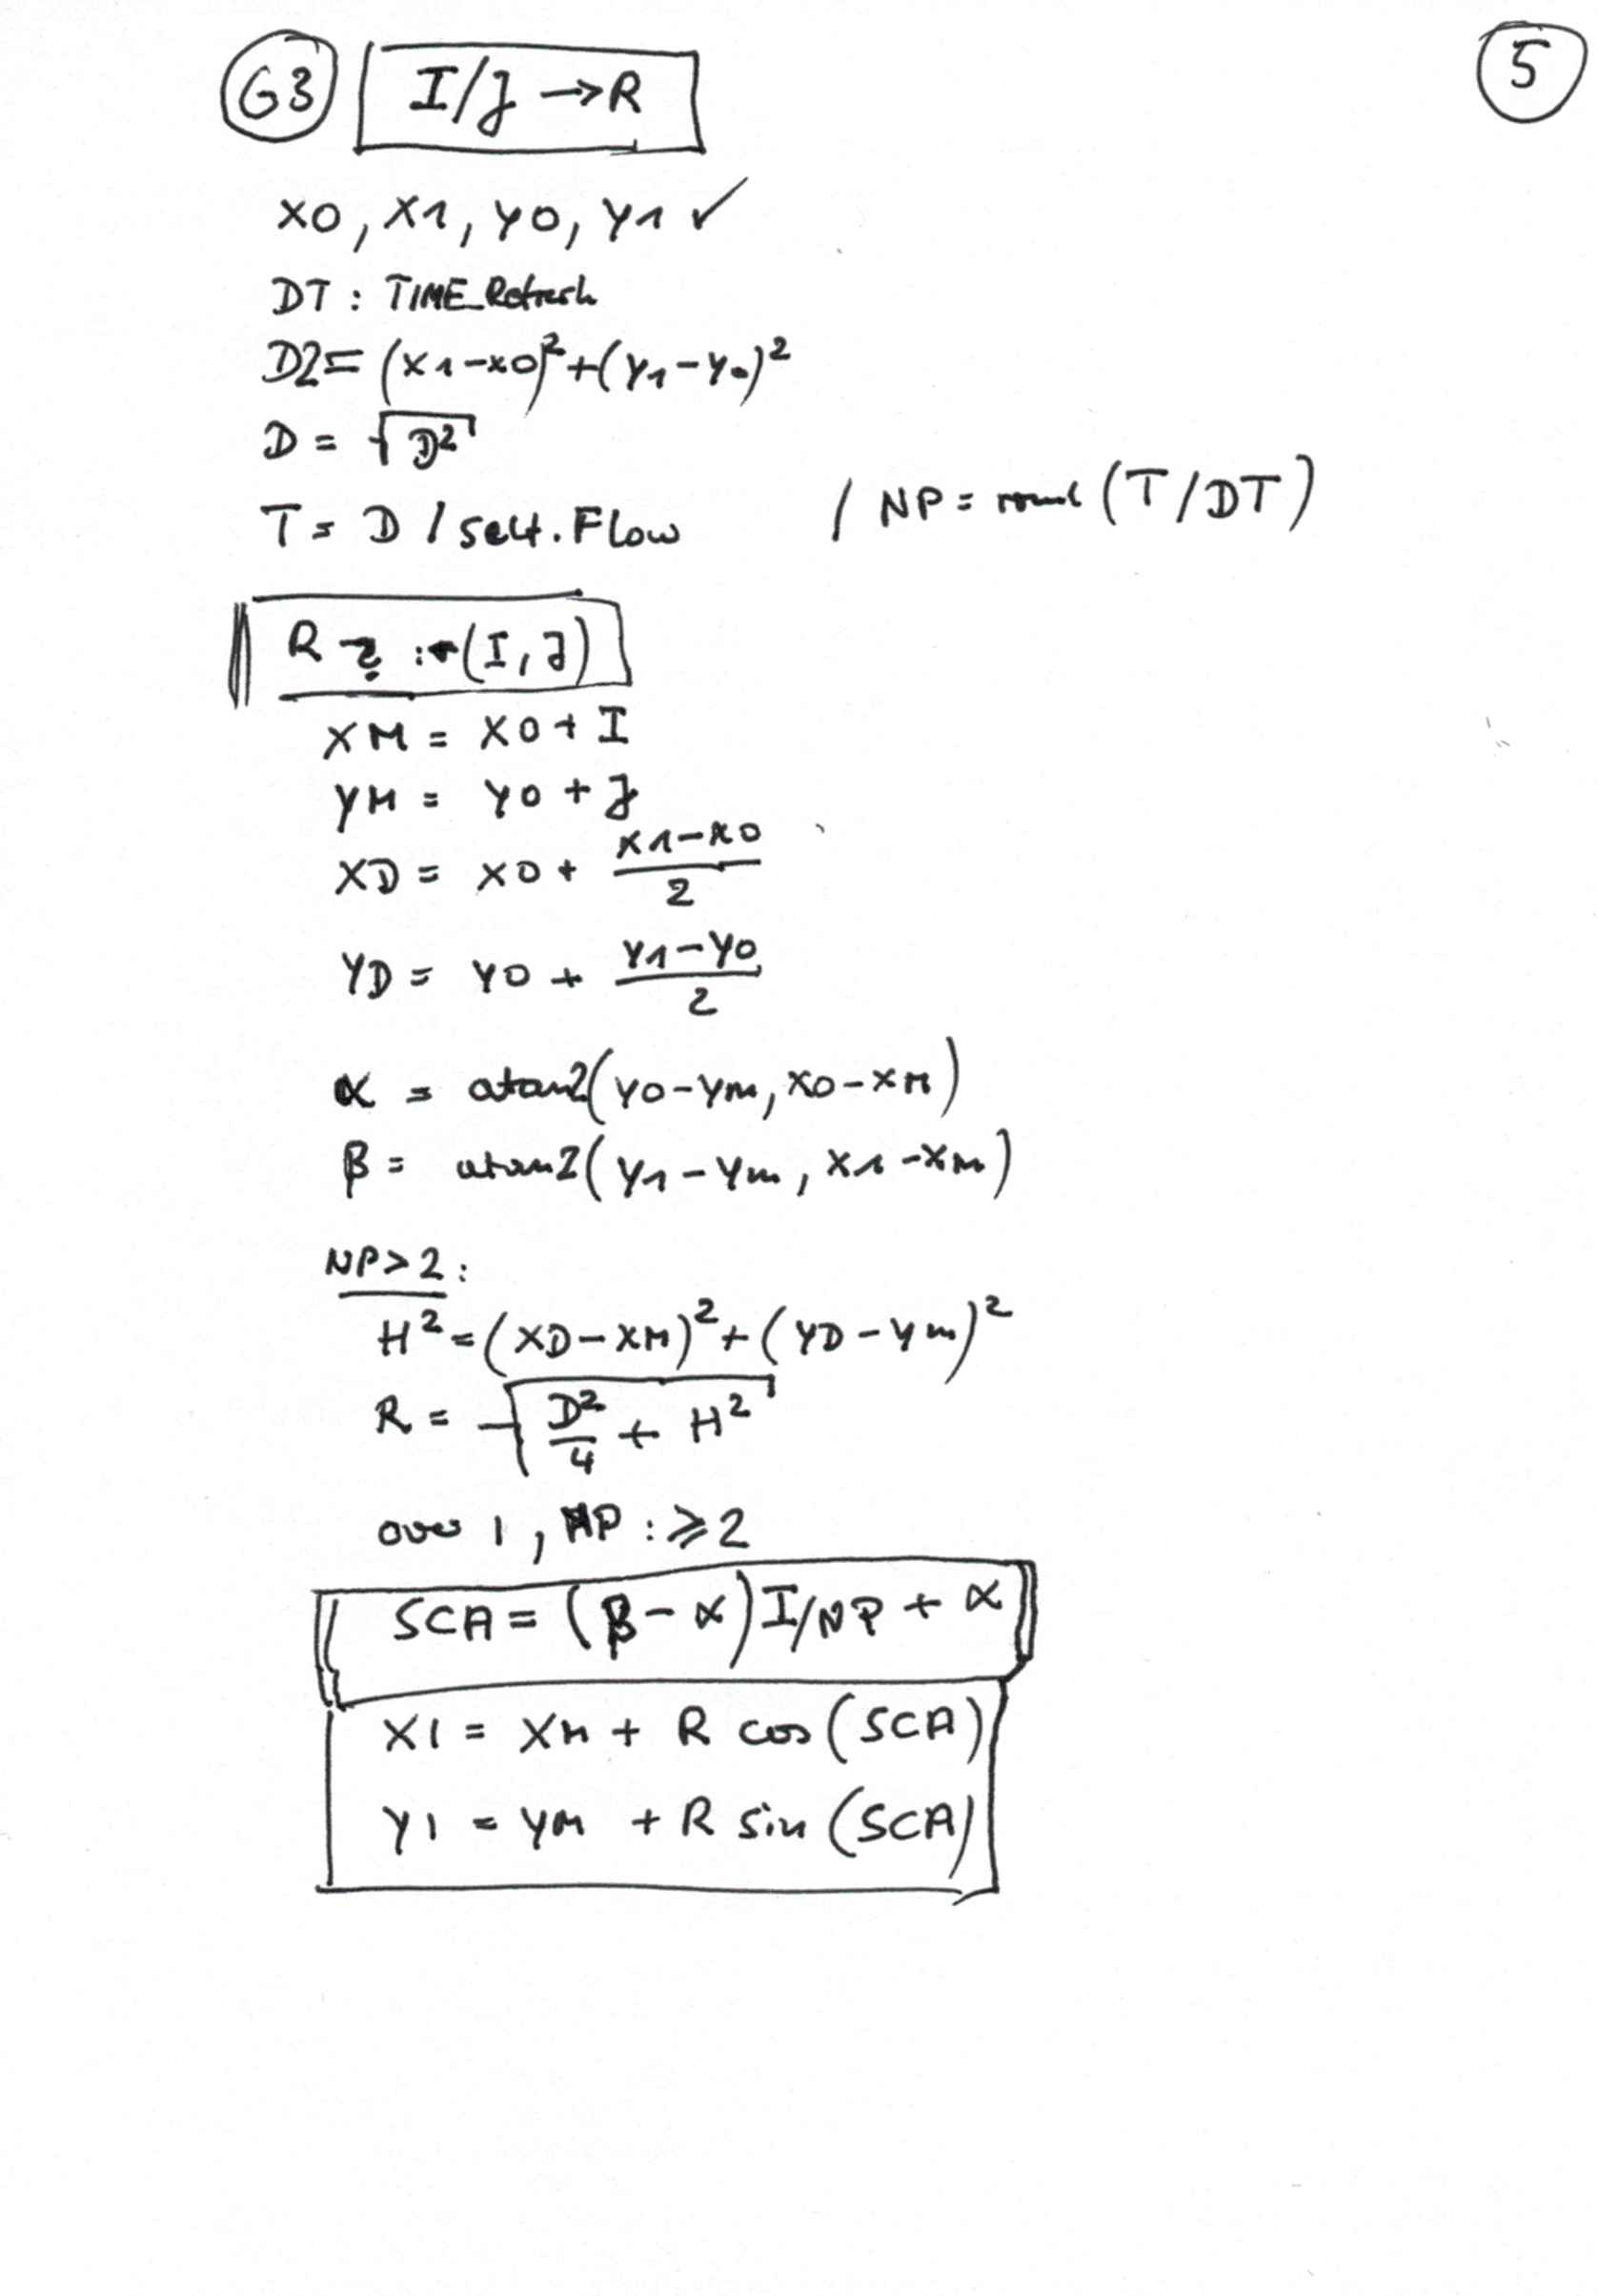 G3 I/J → R
5
X0, X1, Y0, Y1 ✓
DT : TIME_Refresh
D2 = (X1-X0)²+(Y1-Y0)²
D = √D2
T = D / self.Flow / NP = round (T/DT)
R ? : (I, J)
XM = X0 + I
YM = Y0 + J
XD = X0 + (X1-X0)/2
YD = Y0 + (Y1-Y0)/2
α = atan2(Y0-YM, X0-XM)
β = atan2(Y1-YM, X1-XM)
NP>2 :
H² = (XD-XM)²+(YD-YM)²
R = √(D²/4 + H²)
over 1, NP : ≥2
SCA = (β-α)I/NP + α
XI = XM + R cos(SCA)
YI = YM + R sin(SCA)